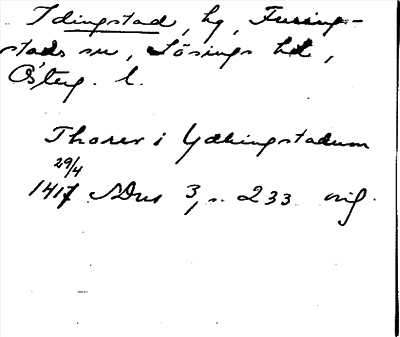 Idingstad, hg, Furing-
stads sn, Lösings hd,
Österg. l.
Thorer i Ydhingstadum
29/4
1417 SDns 3, s. 233 orig.